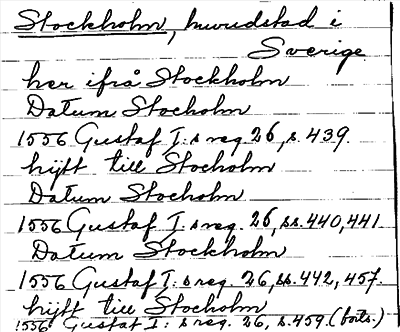 Stockholm, huvudstad i
Sverige
her ifrå Stockholm
Datum Stocholm
1556 Gustaf I:s reg. 26, s. 439.
hijtt till Stocholm
Datum Stocholm
1556 Gustaf I:s reg. 26, ss. 440, 441
Datum Stockholm
1556 Gustaf I:s reg. 26, ss. 442, 457.
hijtt till Stocholm
1556 Gustaf I:s reg. 26, s. 459. (forts.)